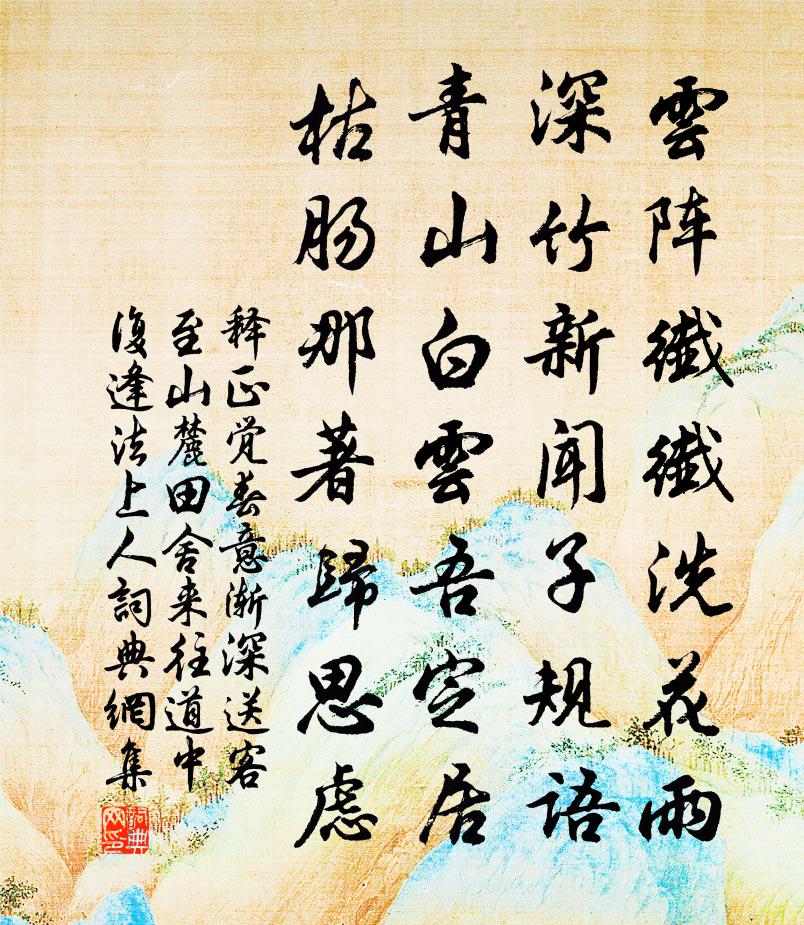 雲阵纖纖洗花雨
深竹新闻子規語
青山白雲吾定居
枯肠那著歸思虑
释正觉春意渐深送客
至山麓田舍来往道中
復逢法上人詞典網集
詞典網印